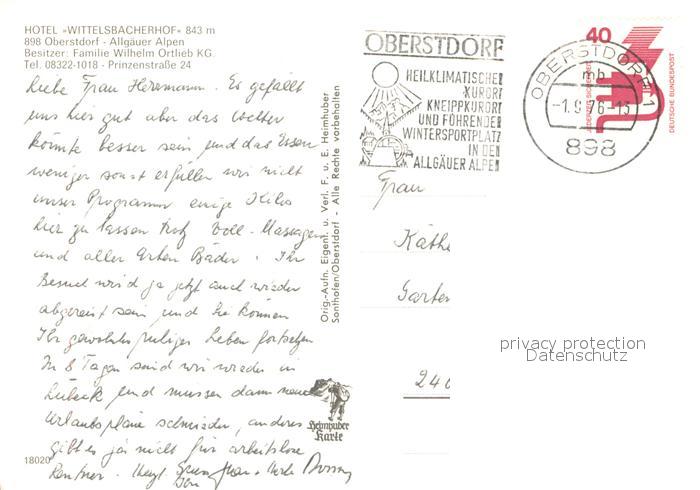 HOTEL »WITTELSBACHERHOF« 843 m
898 Oberstdorf - Allgäuer Alpen
Besitzer: Familie Wilhelm Ortlieb KG
Tel. 08322-1018 - Prinzenstraße 24
Liebe Frau Herrmann. Es gefällt
uns hier gut aber das Wetter
könnte besser sein und das Essen
weniger sonst erfüllen wir nicht
unser Programm einige Kilos
hier zu lassen trotz Voll-Massagen
und aller Arten Bäder. Ihr
Besuch wird ja jetzt auch wieder
abgereist sein und Sie können
Ihr gewohnt ruhiges Leben fortsetzen
In 8 Tagen sind wir wieder in
Lübeck und müssen dann neue
Urlaubspläne schmieden, anderes
gibt es ja nicht für arbeitslose
Rentner. Herzl.
18020
Orig.-Aufn. Eigent. u. Verl. F. u. E. Heimhuber
Sonthofen/Oberstdorf - Alle Rechte vorbehalten
Heimhuber
Karte
OBERSTDORF
HEILKLIMATISCHER
KURORT
KNEIPPKURORT
UND FÜHRENDER
WINTERSPORTPLATZ
IN DEN
ALLGÄUER ALPEN
40
DEUTSCHE BUNDESPOST
OBERSTDORF 1
mb
-1.9.76-13
898
Frau
Käthe
Garten
240
privacy protection
Datenschutz